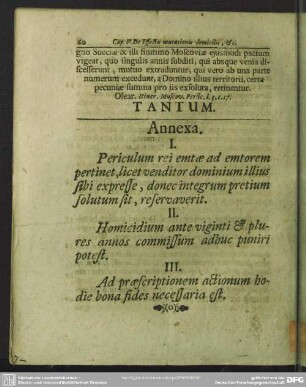 60 Cap. V. De Effectu mutationis domicilii, &c.
gno Sueciæ & illi finitimo Moscoviæ ejusmodi pactum
vigeat, quo singulis annis subditi, qui absque venia dis-
cesserunt, mutuo extraduntur, qui vero ab una parte
numerum excedunt, a Domino illius territorii, certa
pecuniæ summa pro iis exsoluta, retinentur.
Olear. Itiner. Moscov. Persic. l. 3. c. 17.
TANTUM.
Annexa.
I.
Periculum rei emtæ ad emtorem
pertinet, licet venditor dominium illius
sibi expresse, donec integrum pretium
solutum sit, reservaverit.
II.
Homicidium ante viginti & plu-
res annos commissum adhuc puniri
potest.
III.
Ad præscriptionem actionum ho-
die bona fides necessaria est.